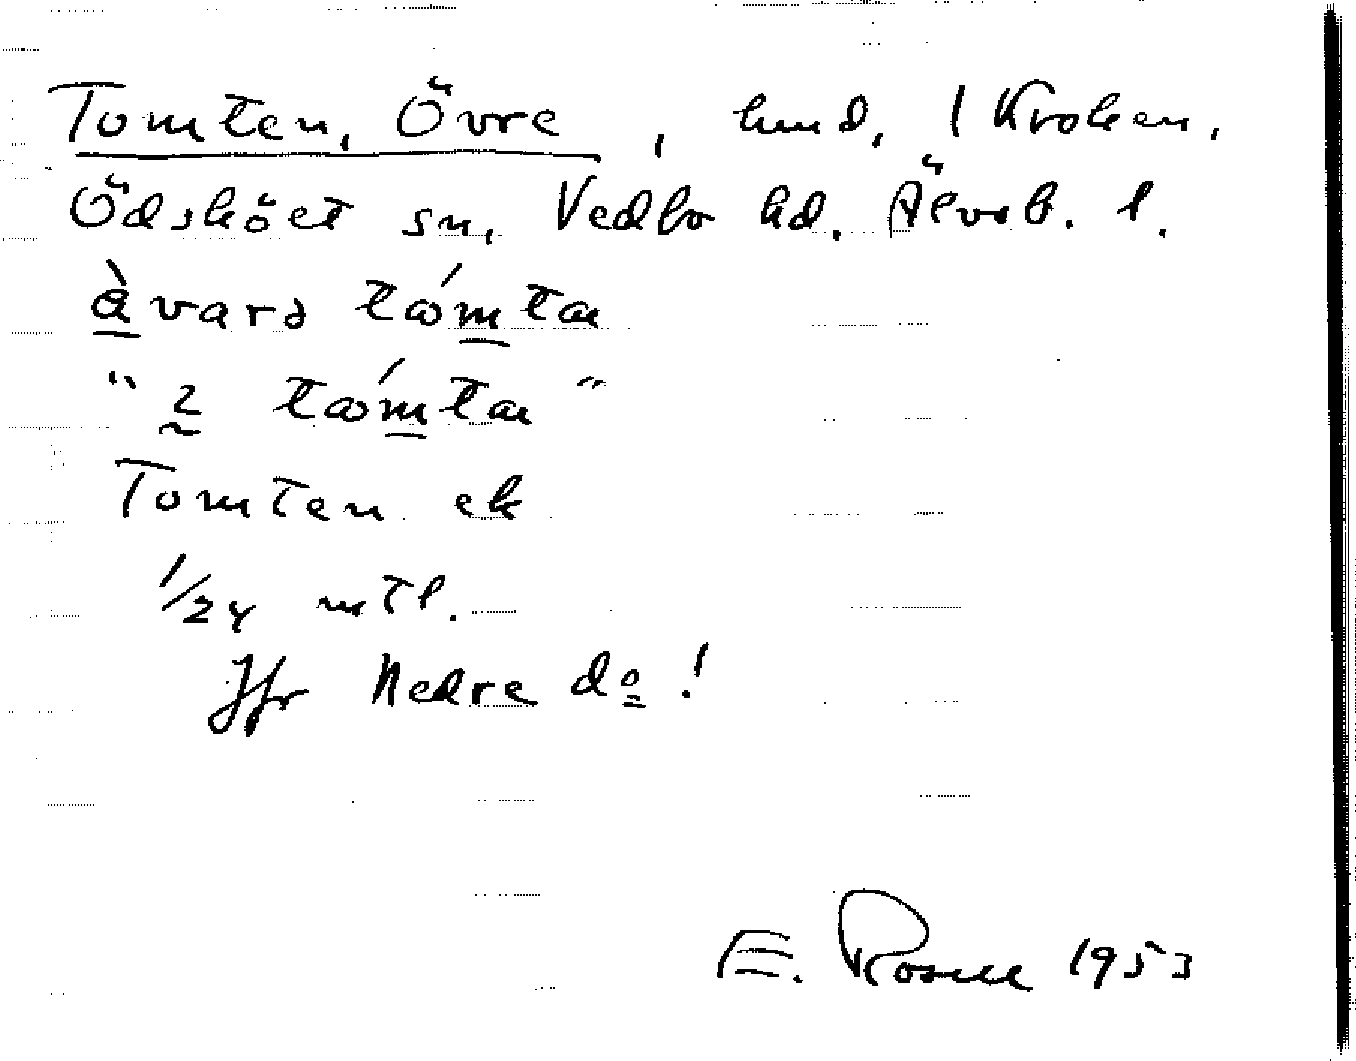 Tomten, Övre, hmd, 1 Kroken,
Ödsköet sn, Vedbo hd. Älvsb. l.
àvarə tωmta
"2 tωmta"
Tomten ek
1/24 mtl.
Jfr Nedre do!
E. Rosell 1953